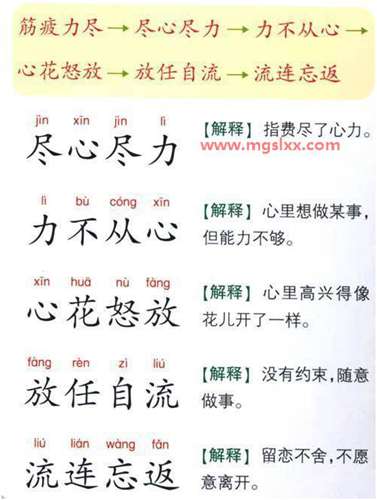 筋疲力尽→尽心尽力→力不从心→
心花怒放→放任自流→流连忘返
jìn xīn jìn lì
尽心尽力
【解释】指费尽了心力。
www.mgslxx.com
lì bù cóng xīn
力不从心
【解释】心里想做某事，
但能力不够。
xīn huā nù fàng
心花怒放
【解释】心里高兴得像
花儿开了一样。
fàng rèn zì liú
放任自流
【解释】没有约束，随意
做事。
liú lián wàng fǎn
流连忘返
【解释】留恋不舍，不愿
意离开。